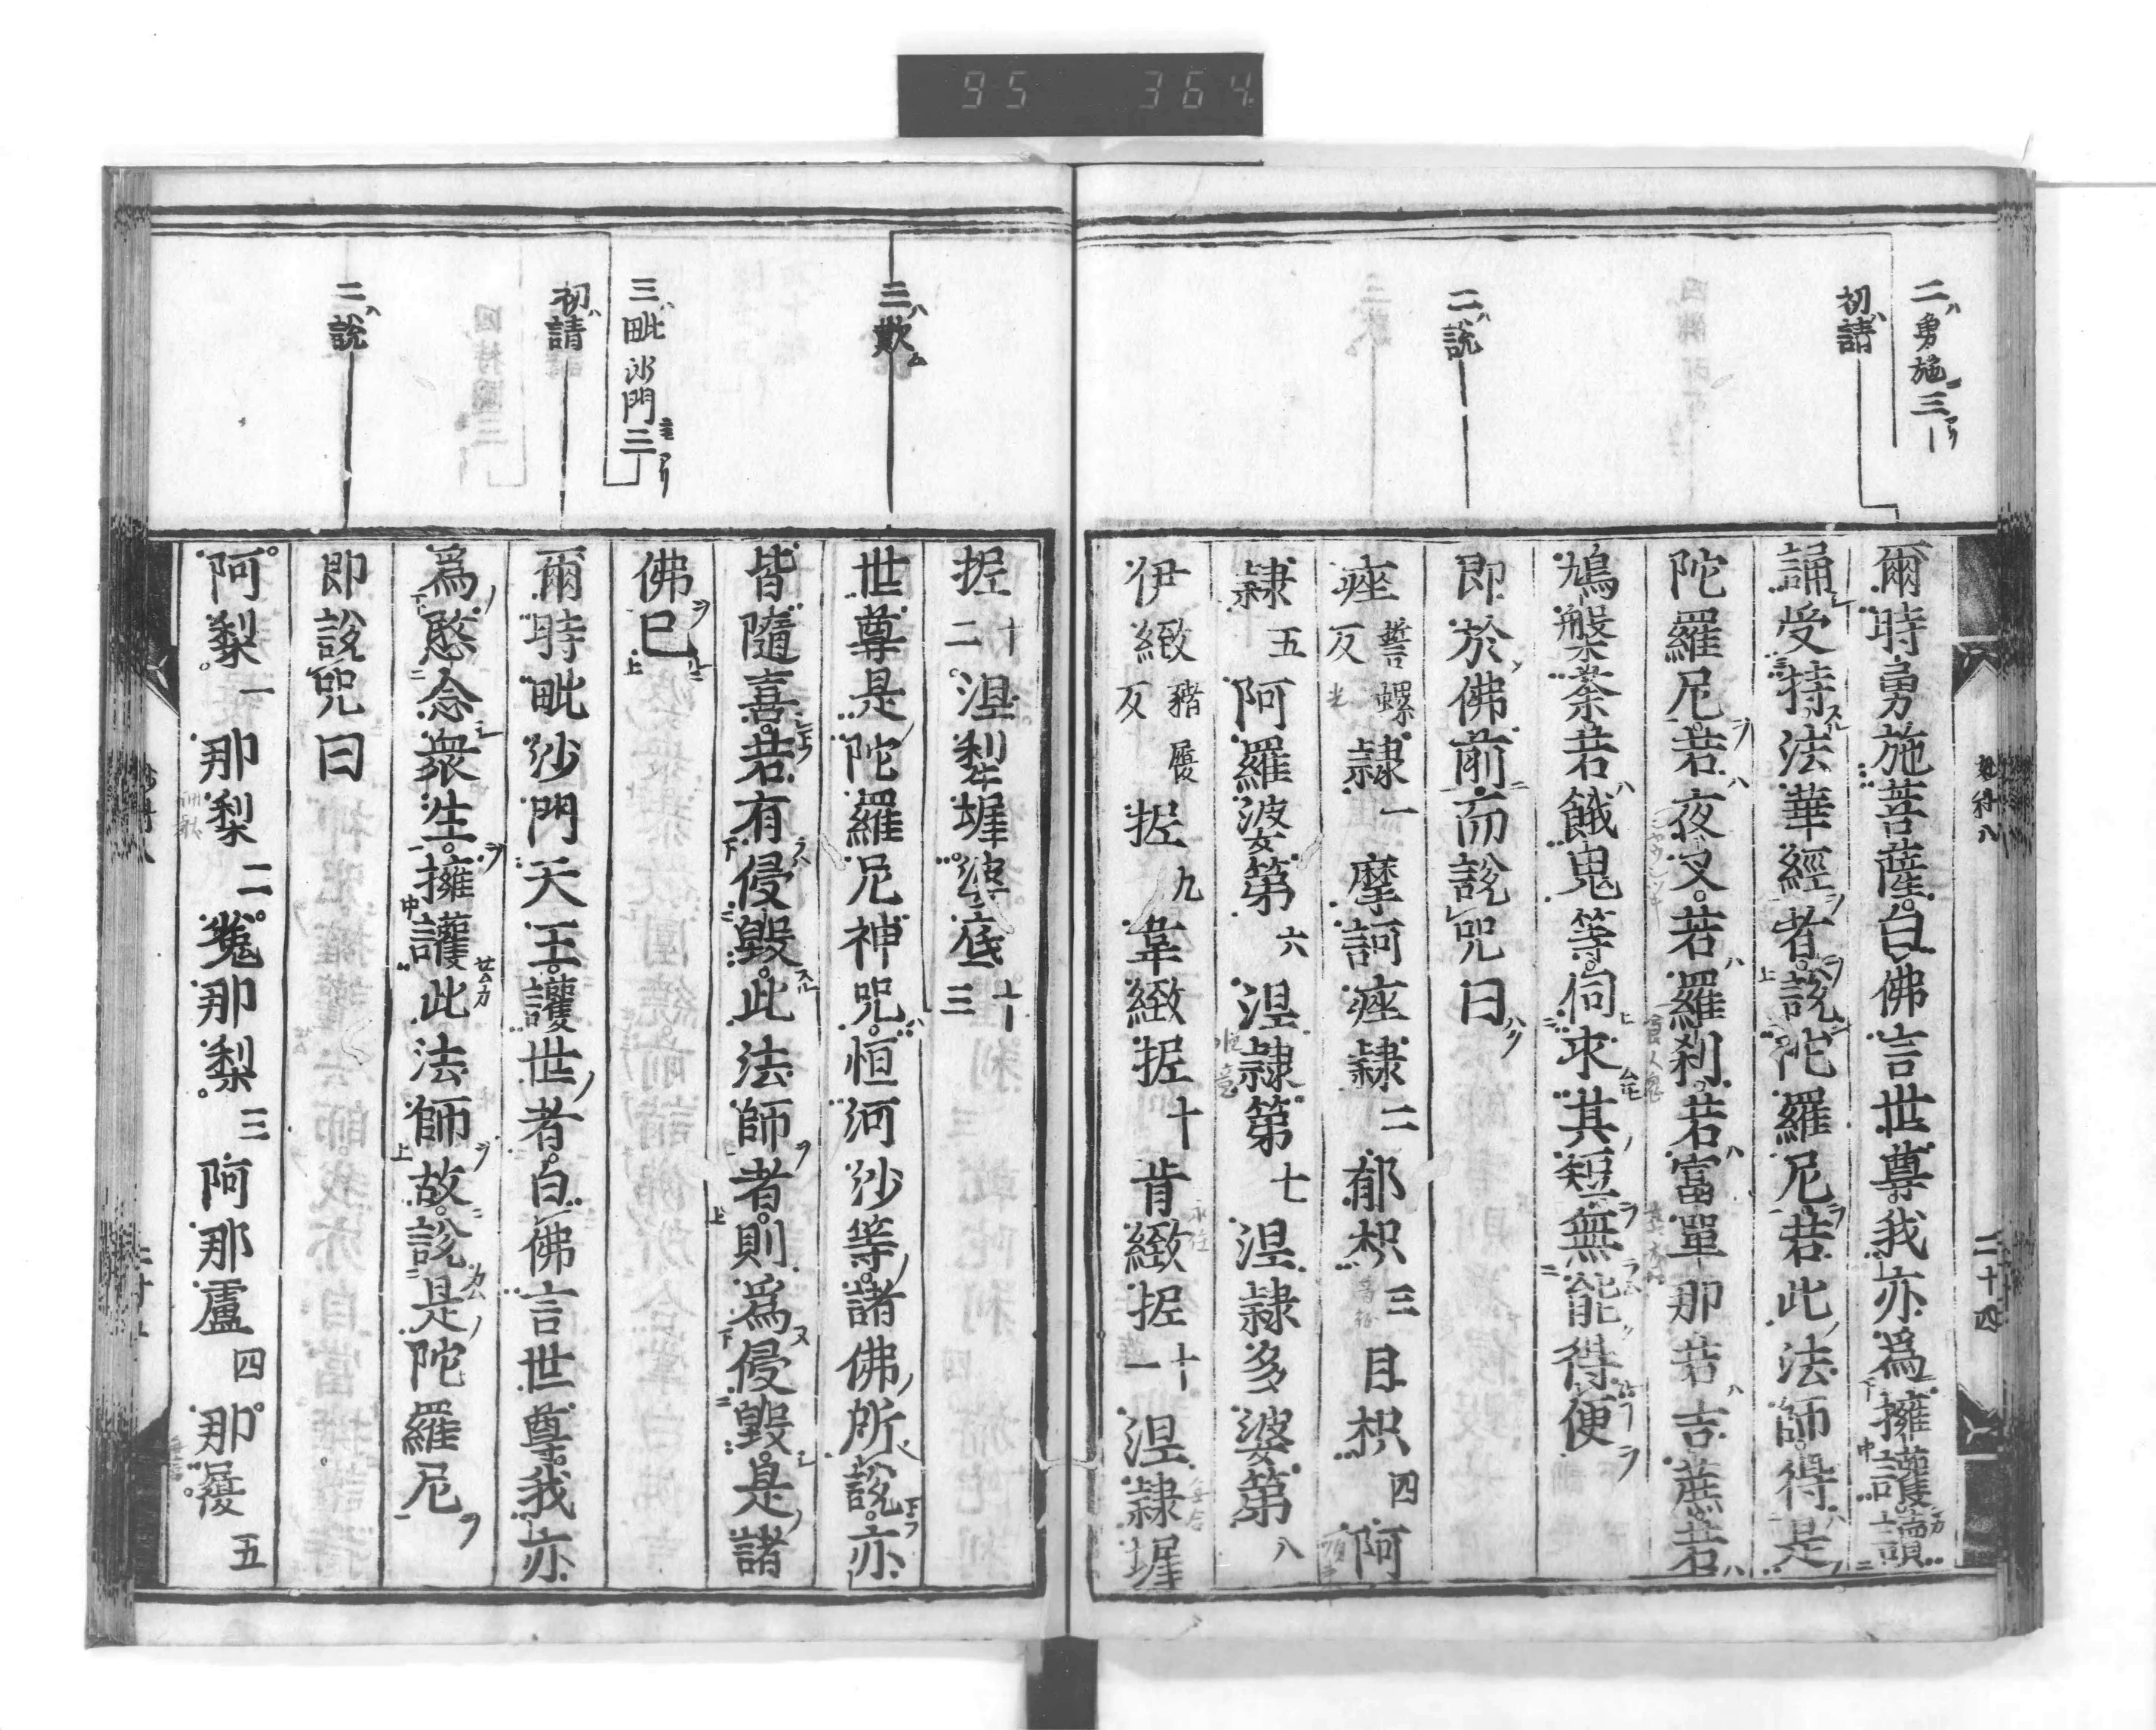 95 364
二勇施三
初請
二說
爾時勇施菩薩白佛言世尊我亦爲擁護讀
誦受持法華經者說陀羅尼若此法師得是
陀羅尼若夜叉若羅刹若富單那若吉蔗若
鳩槃茶若餓鬼等伺求其短無能得便
即於佛前而說咒曰
痤誓螺反隷一摩訶痤隷二郁枳三目枳四阿
隷五阿羅婆第六涅隷第七涅隷多婆第八
伊緻猪履反抳九韋緻抳十㫖緻抳十一涅隷墀
二十四
三歎
三毗沙門三
初請
二說
抳十二涅犁墀婆底十三
世尊是陀羅尼神咒恒河沙等諸佛所說亦
皆隨喜若有侵毀此法師者則爲侵毀是諸
佛已
爾時毗沙門天王護世者白佛言世尊我亦
爲愍念衆生擁護此法師故說是陀羅尼
即說咒曰
阿梨一那梨二㝹那梨三阿那盧四那履五